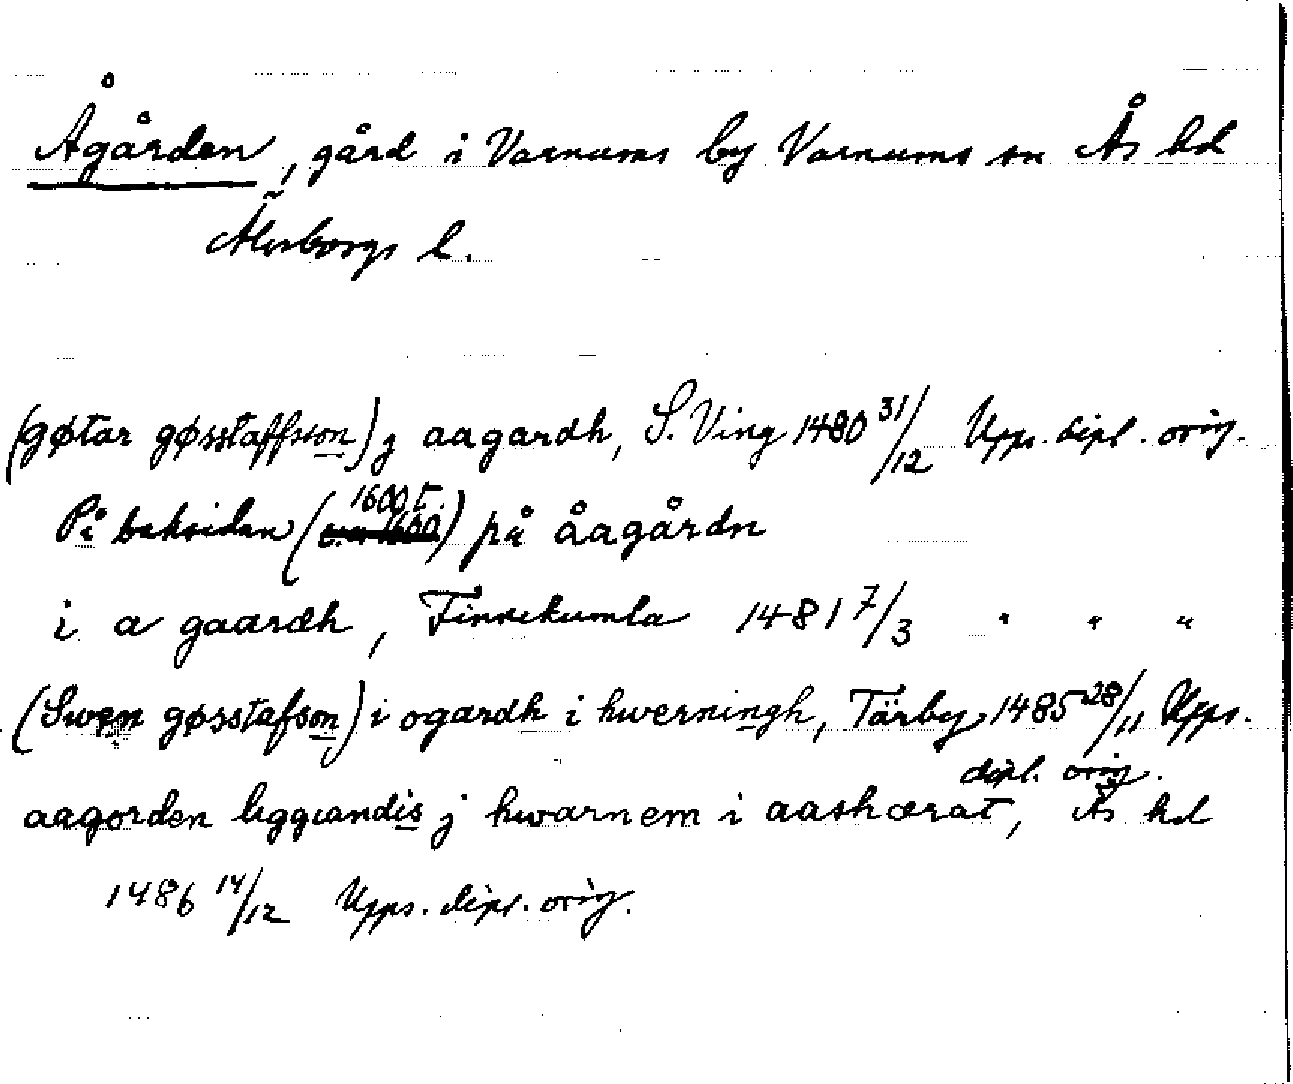 Ågården, gård i Varnums by Varnums sn Ås hd
Älvsborgs l.
(gøtar gøsstaffsson) j aagardh, S. Ving 1480 31/12 Upps. dipl. orig.
På baksidan (1600 t.) på åagårdn
i a gaardh, Finnekumla 1481 7/3 " " "
(Swen gøsstafson) i ogardh i hwerningh, Tärby 1485 28/11 Upps.
dipl. orig.
aagorden liggiandis j hwarnem i aashærat, Ås hd
1486 14/12 Upps. dipl. orig.